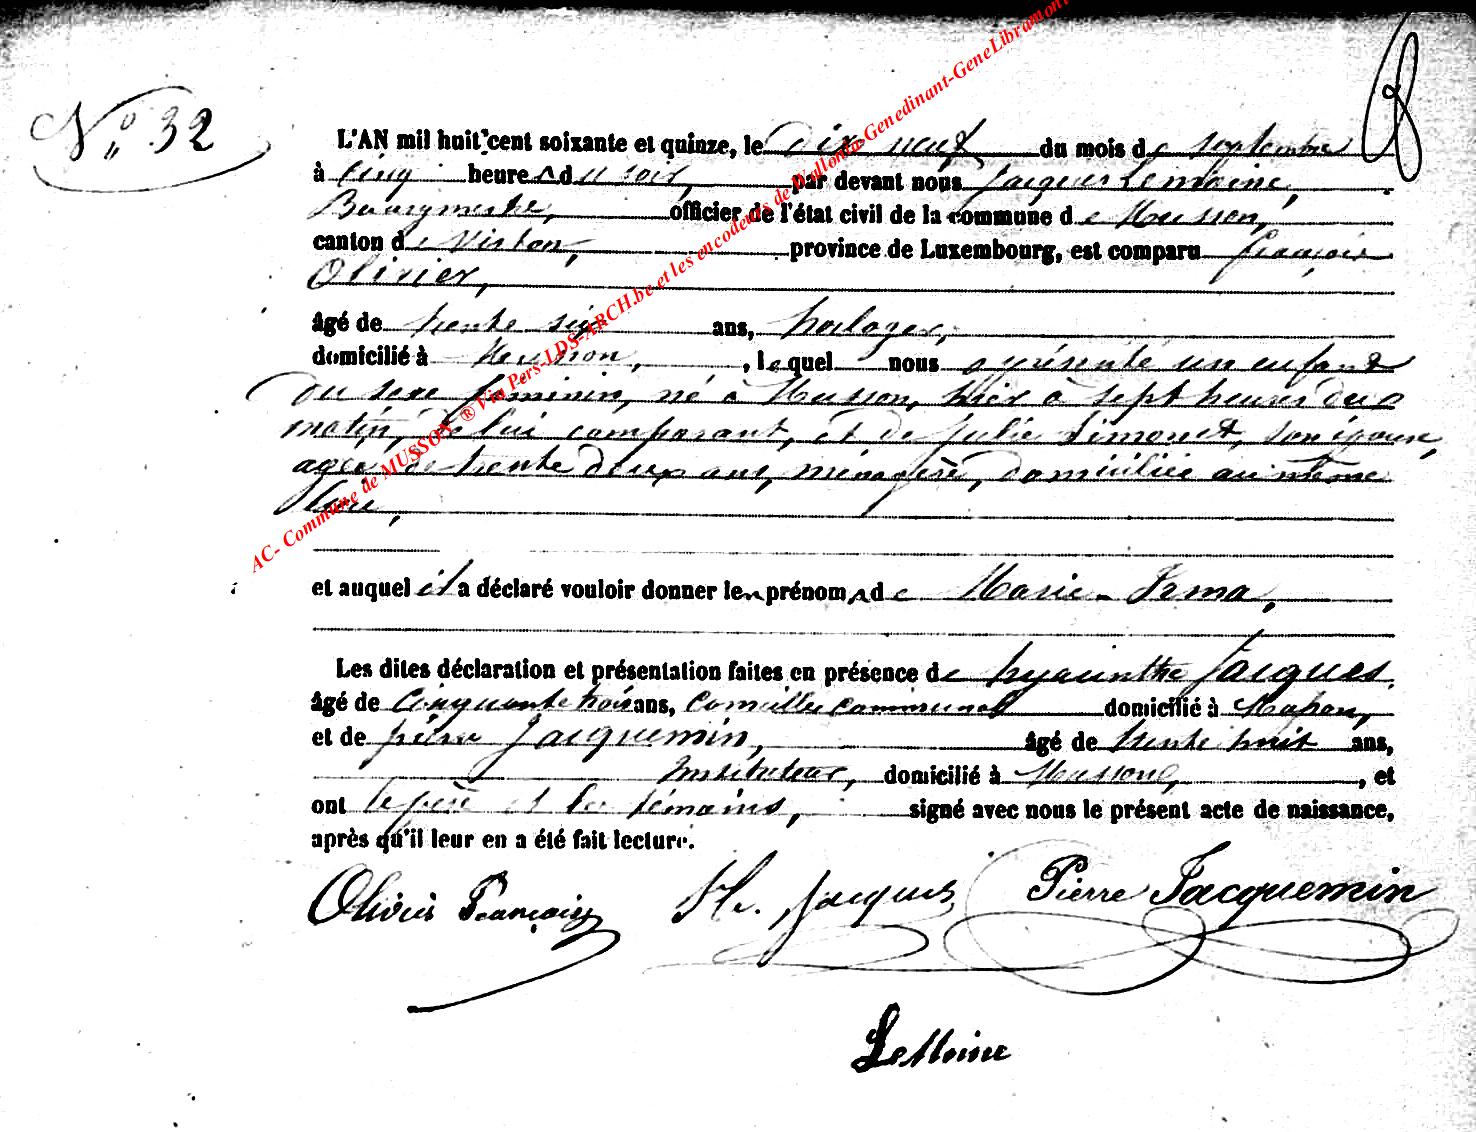 N° 32
L'AN mil huit cent soixante et quinze, le dix neuf du mois de septembre
à cinq heures du soir, par devant nous Jacques Lemoine,
Bourgmestre, officier de l'état civil de la commune de Musson,
canton de Virton, province de Luxembourg, est comparu françois
Olivier,
âgé de trente six ans, horloger,
domicilié à Musson, , lequel nous a présenté un enfant
du sexe féminin, né à Musson, hier à sept heures du
matin, de lui comparant, et de Julie Simonet, son épouse,
agée de trente deux ans, ménagère, domiciliée au même
lieu,
et auquel il a déclaré vouloir donner les prénoms de Marie-Irma,
Les dites déclaration et présentation faites en présence de hyacinthe Jacques
âgé de cinquante trois ans, conseiller communal domicilié à
et de pierre Jacquemin, âgé de trente huit ans,
Instituteur, domicilié à Musson, , et
ont le père et les témoins, signé avec nous le présent acte de naissance,
après qu'il leur en a été fait lecture.
Olivier François H. Jacques Pierre Jacquemin
LeMoine
AC- Commune de MUSSON ® Via Pers-LDS-ARCH.be et les encodeurs de Wallonia-Genedinant-GeneLibramont